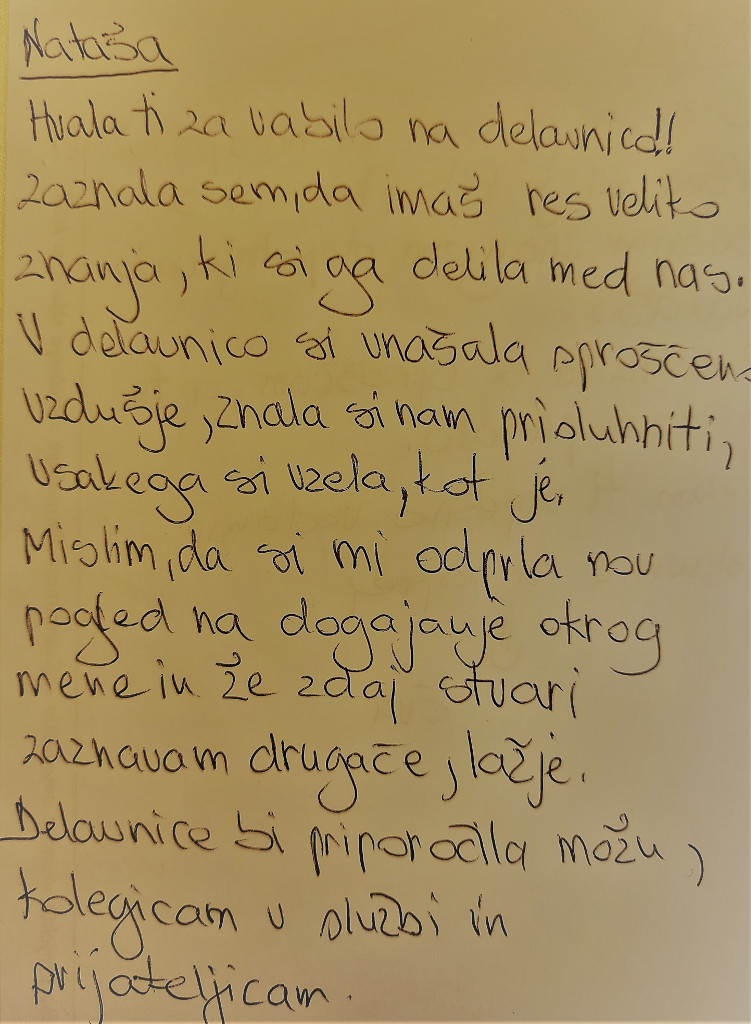 Nataša
Hvala ti za vabilo na delavnico!!
Zaznala sem, da imaš res veliko
znanja, ki si ga delila med nas.
V delavnico si vnašala sproščen
vzdušje, znala si nam prisluhniti,
vsakega si vzela, kot je.
Mislim, da si mi odprla nov
pogled na dogajanje okrog
mene in že zdaj stvari
zaznavam drugače, lažje.
Delavnice bi priporočila možu,
kolegicam v službi in
prijateljicam.